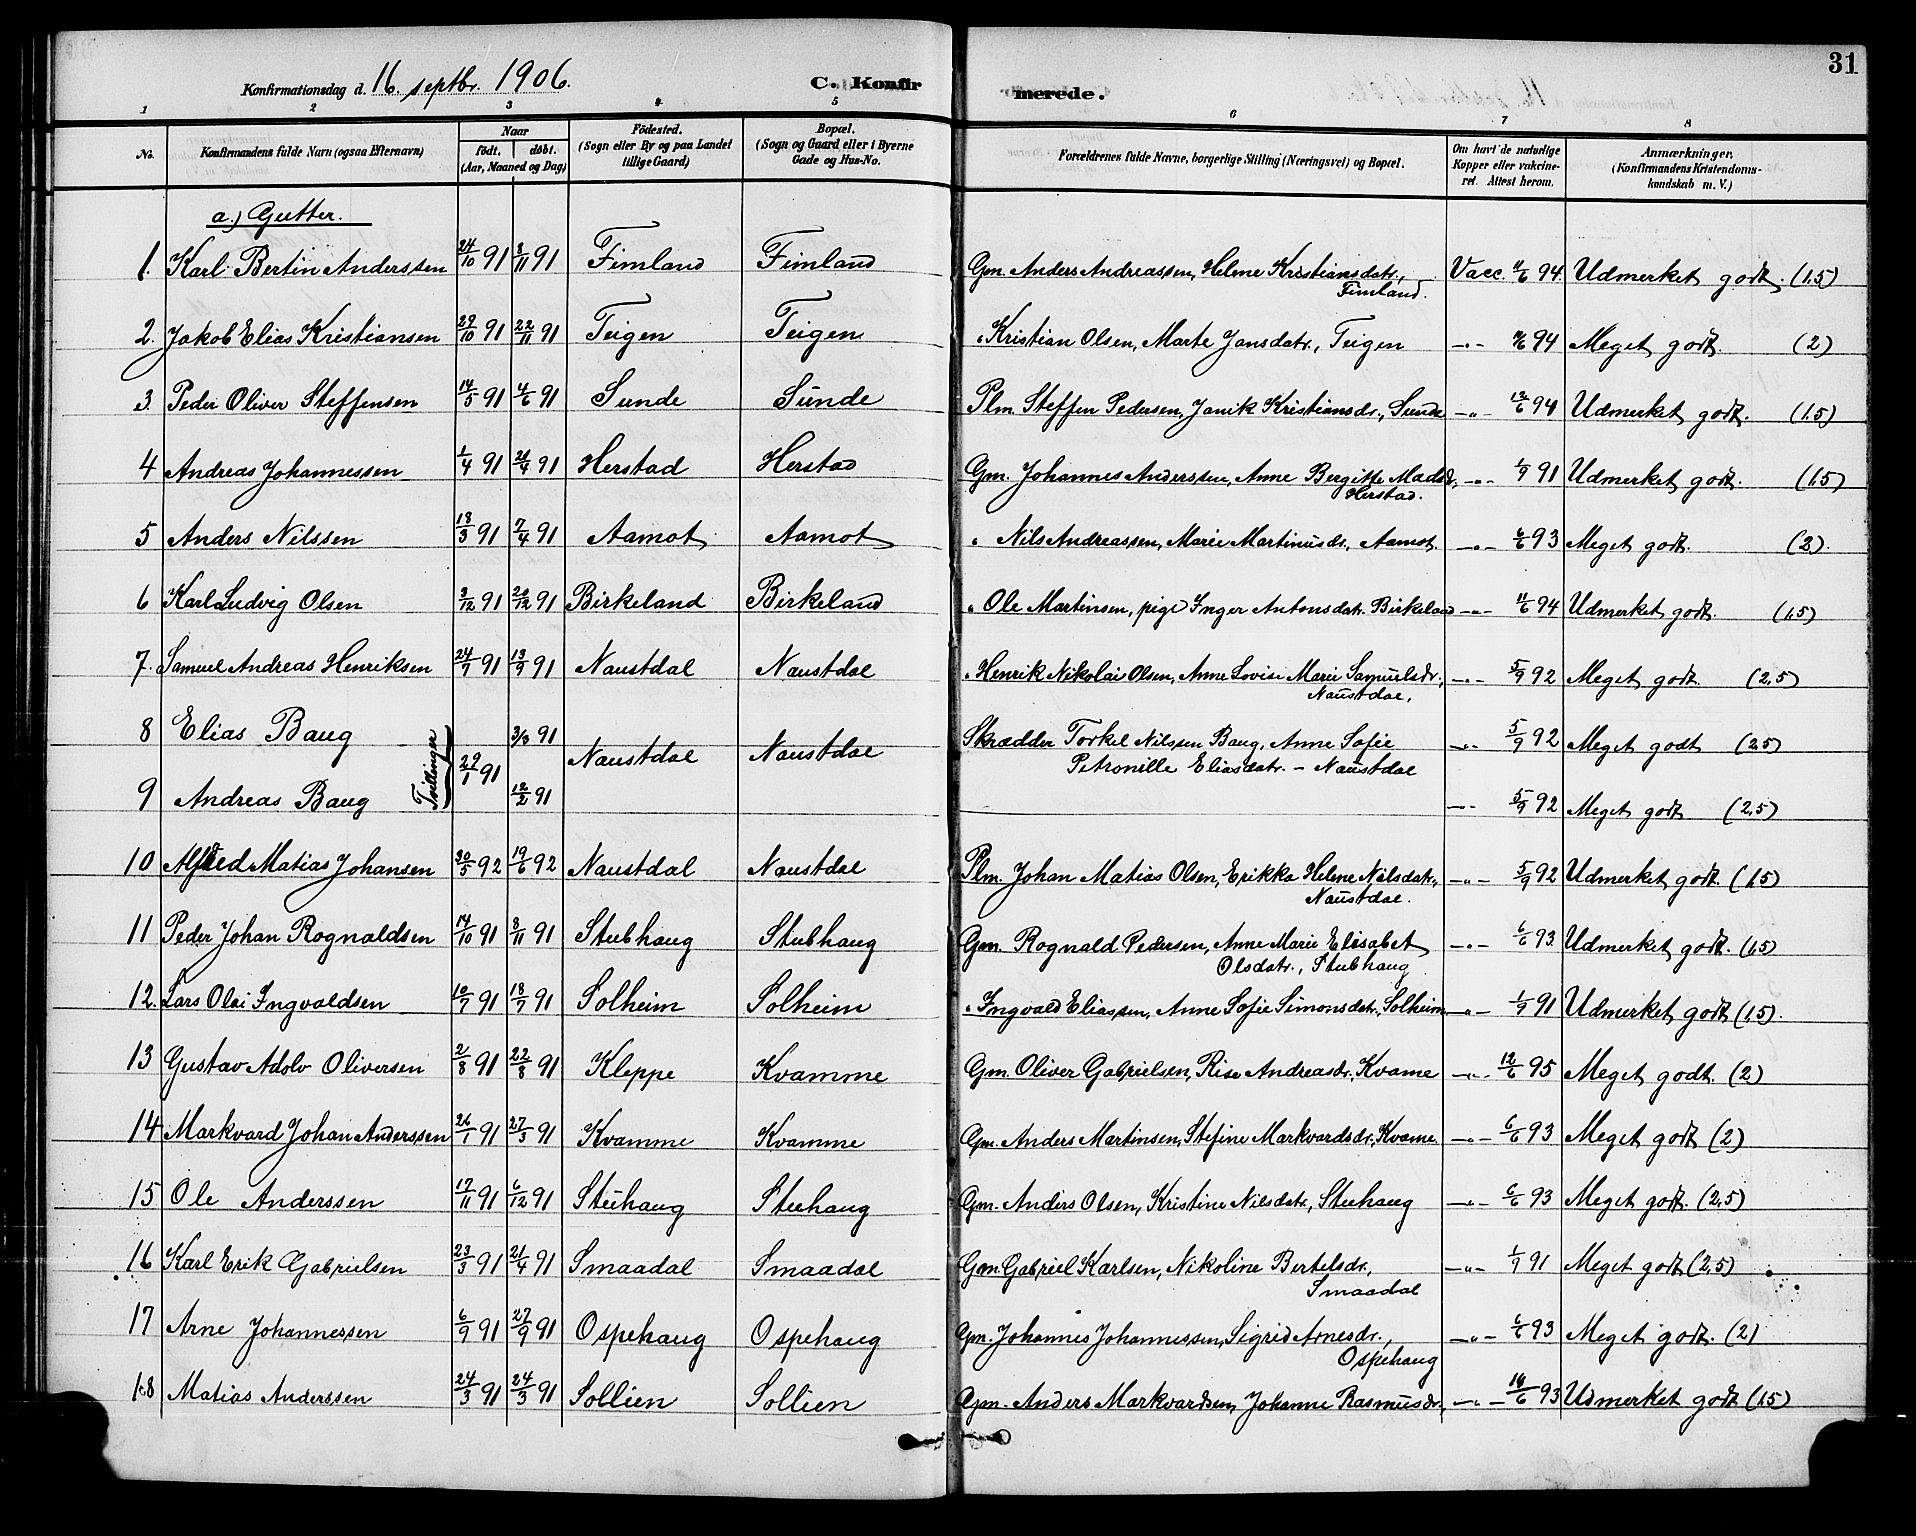 31
Konfirmationsdag d. 16. septbr. 1906. C. Konfirmerede.
1 2 3 4 5 6 7 8
No. Konfirmandens fulde Navn (ogsaa Efternavn) Naar födt. döbt. (Aar, Maaned og Dag) Födested. (Sogn eller By og paa Landet tillige Gaard) Bopæl. (Sogn og Gaard eller i Byerne Gade og Hus-No. Forældrenes fulde Navne, borgerlige Stilling (Næringsvei) og Bopæl. Om havt de naturlige Kopper eller vakcineret. Attest herom. Anmærkninger. (Konfirmandens Kristendomskundskab m. V.)
a.) Gutter.
1. Karl Bertin Anderssen 24/10 91 8/11 91 Fimland Fimland Gm. Anders Andreassen, Helene Kristiansdatr., Fimland. Vacc. 11/6 94. Udmerket godt. (1,5)
2. Jakob Elias Kristiansen 29/10 91 22/11 91 Teigen Teigen " Kristian Olsen, Marte Jansdatr., Teigen -"- 11/6 94 Meget godt. (2)
3. Peder Oliver Steffensen 14/5 91 4/6 91 Sunde Sunde Plm. Steffen Pedersen, Janik Kristiansdr., Sunde -"- 12/6 94 Udmerket godt. (1,5)
4 Andreas Johannessen 1/4 91 21/4 91 Herstad Herstad Gm. Johannes Anderssen, Anne Bergitte Madsd., Herstad. -"- 1/9 91 Udmerket godt. (1,5)
5 Anders Nilssen 18/3 91 7/4 91 Aamot Aamot " Nils Andreassen, Marie Martinusdr., Aamot. -"- 6/6 93 Meget godt. (2).
6 Karl Ludvig Olsen 3/12 91 20/12 91 Birkeland Birkeland " Ole Martinsen, pige Inger Antonsdatr. Birkeland -"- 11/6 94 Udmerket godt. (1,5)
7. Samuel Andreas Henriksen 24/7 91 13/9 91 Naustdal Naustdal " Henrik Nikolai Olsen, Anne Lovise Marie Samuelsdr., Naustdal, -"- 5/9 92 Meget godt. (2,5)
8 Elias Baug Tvillinger 29/1 91 3/3 91 Naustdal Naustdal Skrædder Torkel Nilssen Baug, Anne Sofie Petronille Eliasdatr. - Naustdal -"- 5/9 92 Meget godt (2,5)
9 Andreas Baug 12/2 91 -"- 5/9 92 Meget godt (2,5)
10 Alfred Matias Johansen 30/5 92 19/6 92 Naustdal Naustdal Plm. Johan Matias Olsen, Erikka Helene Nilsdatr., Naustdal. -"- 5/9 92 Udmerket godt. (1,5)
11 Peder Johan Rognaldsen 14/10 91 8/11 91 Stubhaug Stubhaug Gm. Rognald Pedersen, Anne Marie Elisabet Olsdatr., Stubhaug -"- 6/6 93. Udmerket godt. (1,5)
12. Lars Olai Ingvaldsen 10/7 91 18/7 91 Solheim Solheim " Ingvald Eliassen, Anne Sofie Simonsdatr., Solheim -"- 1/9 91 Udmerket godt (1,5).
13 Gustav Adolv Oliversen 2/8 91 22/8 91 Kleppe Kvamme Gm. Oliver Gabrielsen, Rise Andreasdr., Kvame -"- 12/6 95 Meget godt. (2)
14 Markvard Johan Anderssen 26/1 91 27/3 91 Kvamme Kvamme Gm. Anders Martinsen, Stefine Markvardsdr., Kvame. -"- 6/6 93 Meget godt (2)
15 Ole Anderssen 17/11 91 6/12 91 Stuhaug Stuhaug Gm. Anders Olsen, Kristine Nilsdatr., Stuhaug -"- 6/6 93 Meget godt. (2,5)
16 Karl Erik Gabrielsen 23/3 91 21/4 91 Smaadal Smaadal Gm. Gabriel Karlsen, Nikoline Bertelsdr., Smaadal -"- 1/9 91 Meget godt (2,5)
17 Arne Johannessen 6/9 91 27/9 91 Ospehaug Ospehaug Gm. Johannes Johannessen, Sigrid Arnesdr., Ospehaug -"- 6/6 93 Meget godt. (2)
18 Matias Anderssen 24/3 91 24/3 91 Sollien Sollien Gm. Anders Markvardsen, Johanne Rasmusdr., -"- 16/6 93 Udmerket godt (1,5)